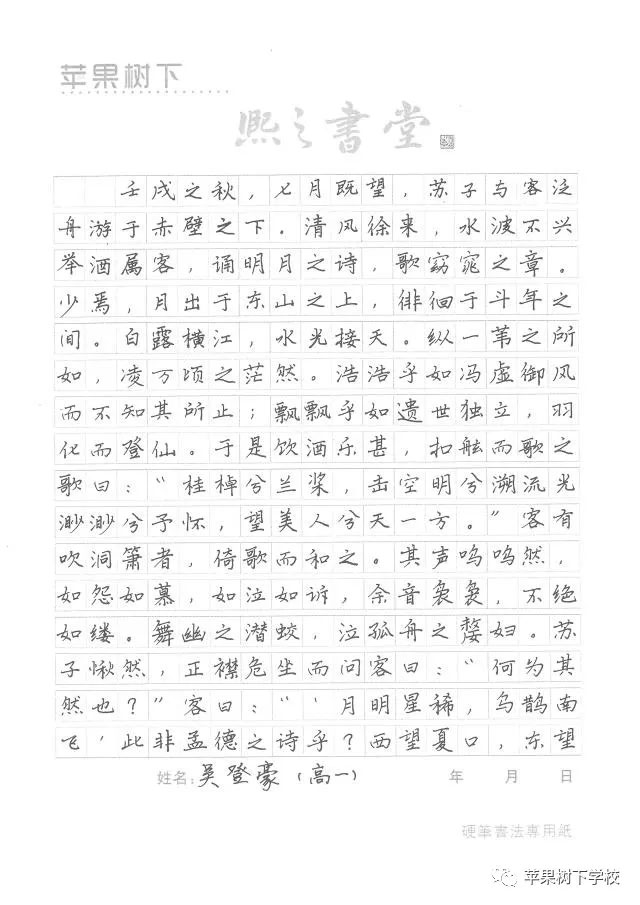 苹果树下
熙之書堂
壬戌之秋，七月既望，苏子与客泛
舟游于赤壁之下。清风徐来，水波不兴
举酒属客，诵明月之诗，歌窈窕之章。
少焉，月出于东山之上，徘徊于斗牛之
间。白露横江，水光接天。纵一苇之所
如，凌万顷之茫然。浩浩乎如冯虚御风
而不知其所止；飘飘乎如遗世独立，羽
化而登仙。于是饮酒乐甚，扣舷而歌之
歌曰：“桂棹兮兰桨，击空明兮溯流光
渺渺兮予怀，望美人兮天一方。”客有
吹洞箫者，倚歌而和之。其声呜呜然，
如怨如慕，如泣如诉，余音袅袅，不绝
如缕。舞幽之潜蛟，泣孤舟之嫠妇。苏
子愀然，正襟危坐而问客曰：“何为其
然也？”客曰：“‘月明星稀，乌鹊南
飞’此非孟德之诗乎？西望夏口，东望
姓名：吴登豪（高一） 年 月 日
硬筆書法專用紙
苹果树下学校